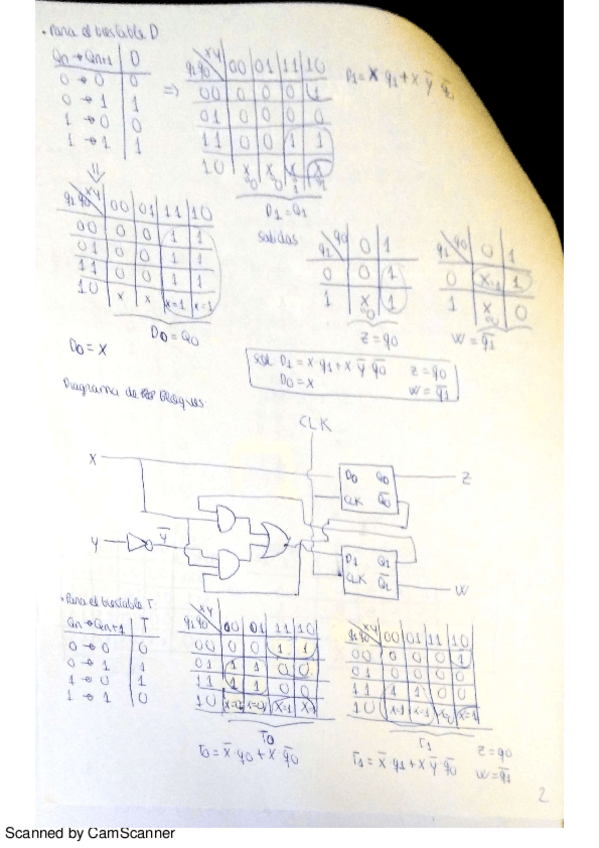 • Para el biestable D
Qn → Qn+1 | D
0 → 0 | 0
0 → 1 | 1
1 → 0 | 0
1 → 1 | 1
⇒
xy
q1q0 | 00 | 01 | 11 | 10
00 | 0 | 0 | 0 | 1
01 | 0 | 0 | 0 | 0
11 | 0 | 0 | 1 | 1
10 | x | x
D1 = Q1
D1 = x q1 + x y̅ q̅0
⇓
xy
q1q0 | 00 | 01 | 11 | 10
00 | 0 | 0 | 1 | 1
01 | 0 | 0 | 1 | 1
11 | 0 | 0 | 1 | 1
10 | x | x | x=1 | x=1
D0 = Q0
D0 = x
Salidas
q0
q1 | 0 | 1
0 | 0 | 1
1 | x | 1
z = q0
q0
q1 | 0 | 1
0 | x=1 | 1
1 | x | 0
w = q̅1
D1 = x q1 + x y̅ q̅0 z = q0
D0 = x w = q̅1
Diagrama de Bloques
CLK
x
D0 Q0
z
CLK Q̅0
y
y̅
D1 Q1
CLK Q̅1
w
• Para el biestable T
Qn → Qn+1 | T
0 → 0 | 0
0 → 1 | 1
1 → 0 | 1
1 → 1 | 0
xy
q1q0 | 00 | 01 | 11 | 10
00 | 0 | 0 | 1 | 1
01 | 1 | 1 | 0 | 0
11 | 1 | 1 | 0 | 0
10 | x=0 | x=0 | x=1
T0
T0 = x̅ q0 + x q̅0
xy
q1q0 | 00 | 01 | 11 | 10
00 | 0 | 0 | 0 | 1
01 | 0 | 0 | 0 | 0
11 | 1 | 1 | 0 | 0
10 | x=1 | x=1 | x=0 | x=1
T1
T1 = x̅ q1 + x y̅ q̅0
z = q0
w = q̅1
2
Scanned by CamScanner